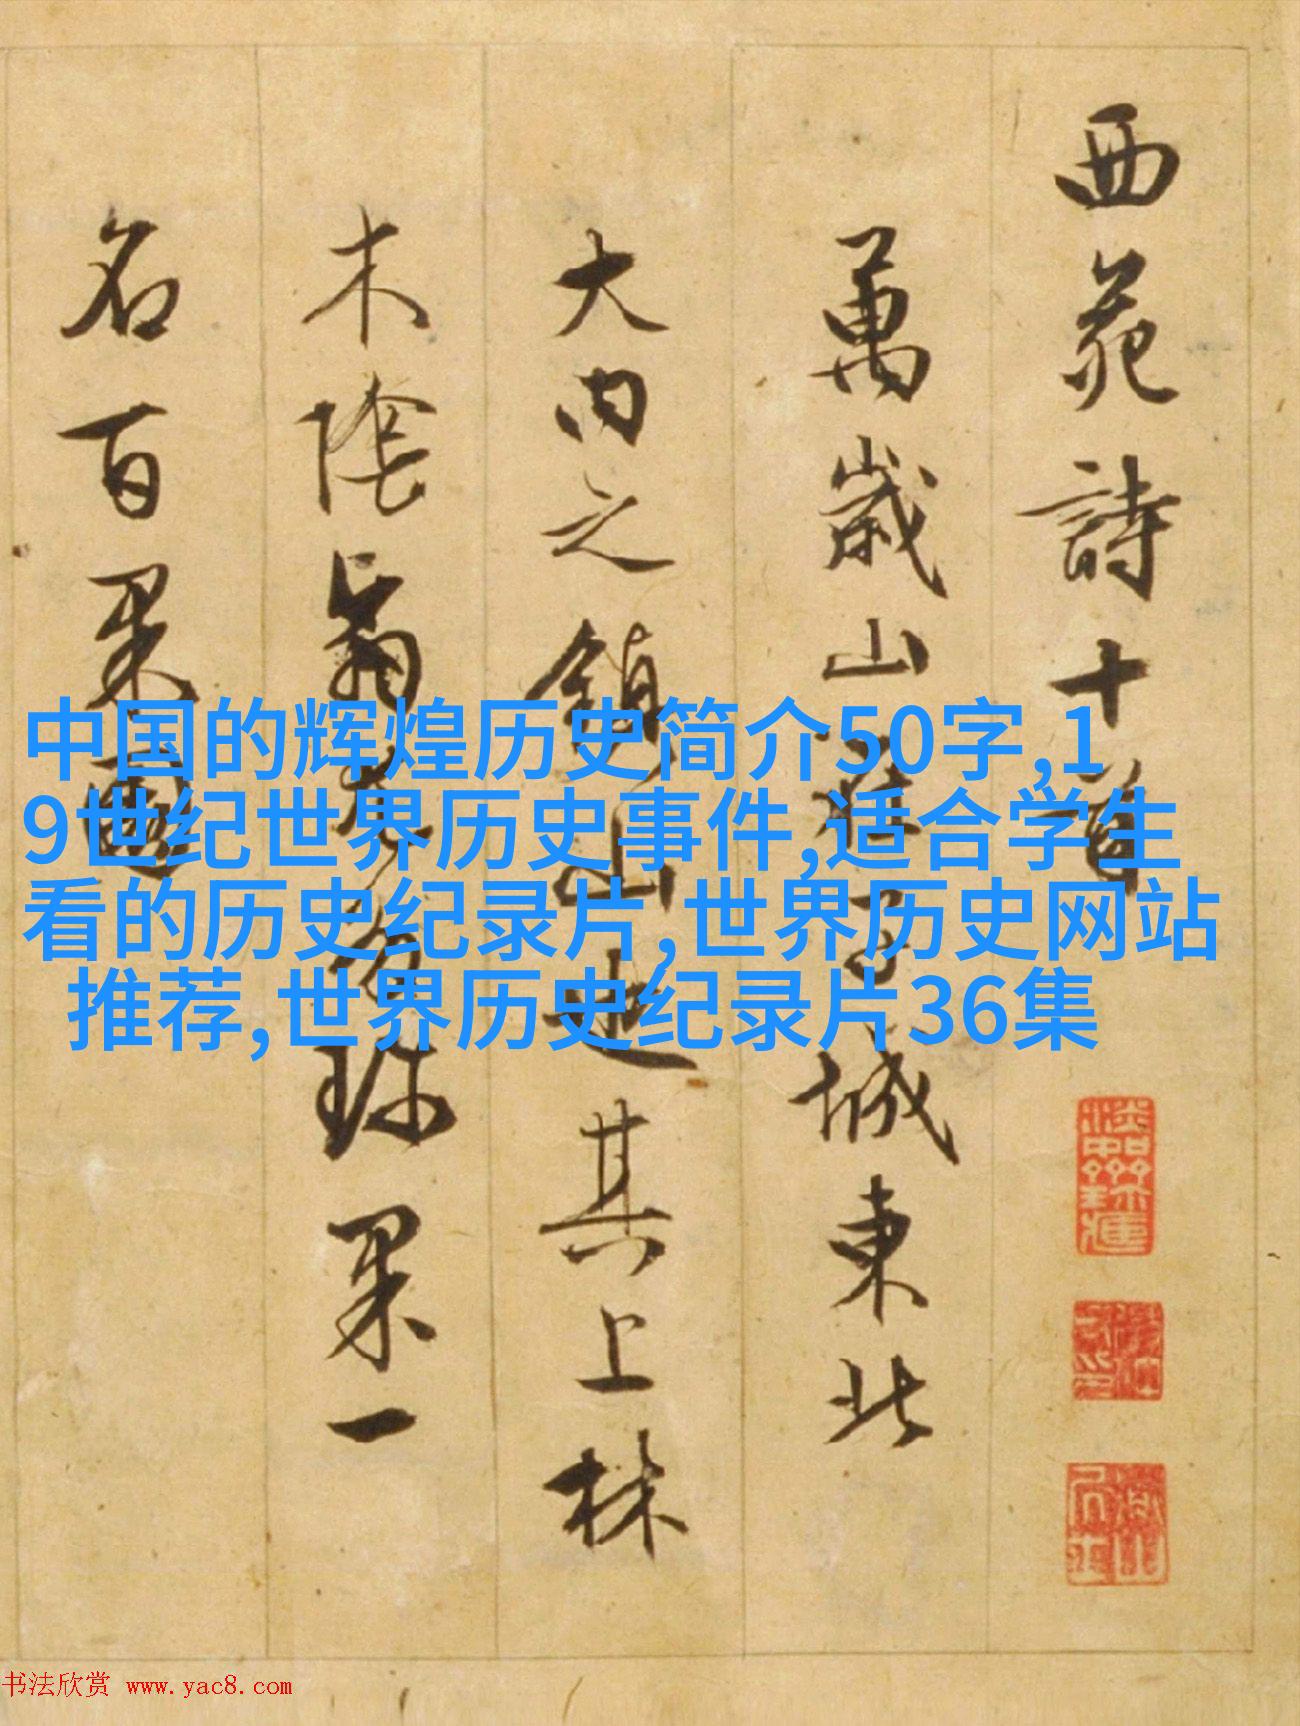 西苑詩十首
萬歲山在子城東北
大内之鎮山也其上林
木陰翳尤多珍果一
名百果園
中国的辉煌历史简介50字,1
9世纪世界历史事件,适合学生
看的历史纪录片,世界历史网站
推荐,世界历史纪录片36集
书法欣赏 www.yac8.com